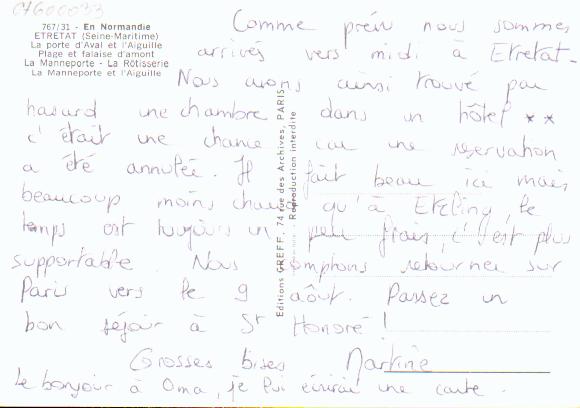 CF600033
767/31 - En Normandie
ETRETAT (Seine-Maritime)
La porte d'Aval et l'Aiguille
Plage et falaise d'amont
La Manneporte - La Rôtisserie
La Manneporte et l'Aiguille
Comme prévu nous sommes
arrivés vers midi à Etretat-
Nous avons ainsi trouvé par
hasard une chambre dans un hôtel **
c'était une chance car une reservation
a été annulée. Il fait beau ici mais
beaucoup moins chaud qu'à Etzling, le
temps est toujours un peu frais, c'est plus
supportable. Nous comptons retourner sur
Paris vers le 9 août. Passez un
bon séjour à St Honoré !
Grosses bises Martine
Le bonjour à Oma, je lui écrirai une carte.
Editions GREFF, 74 rue des Archives, PARIS
Reproduction interdite